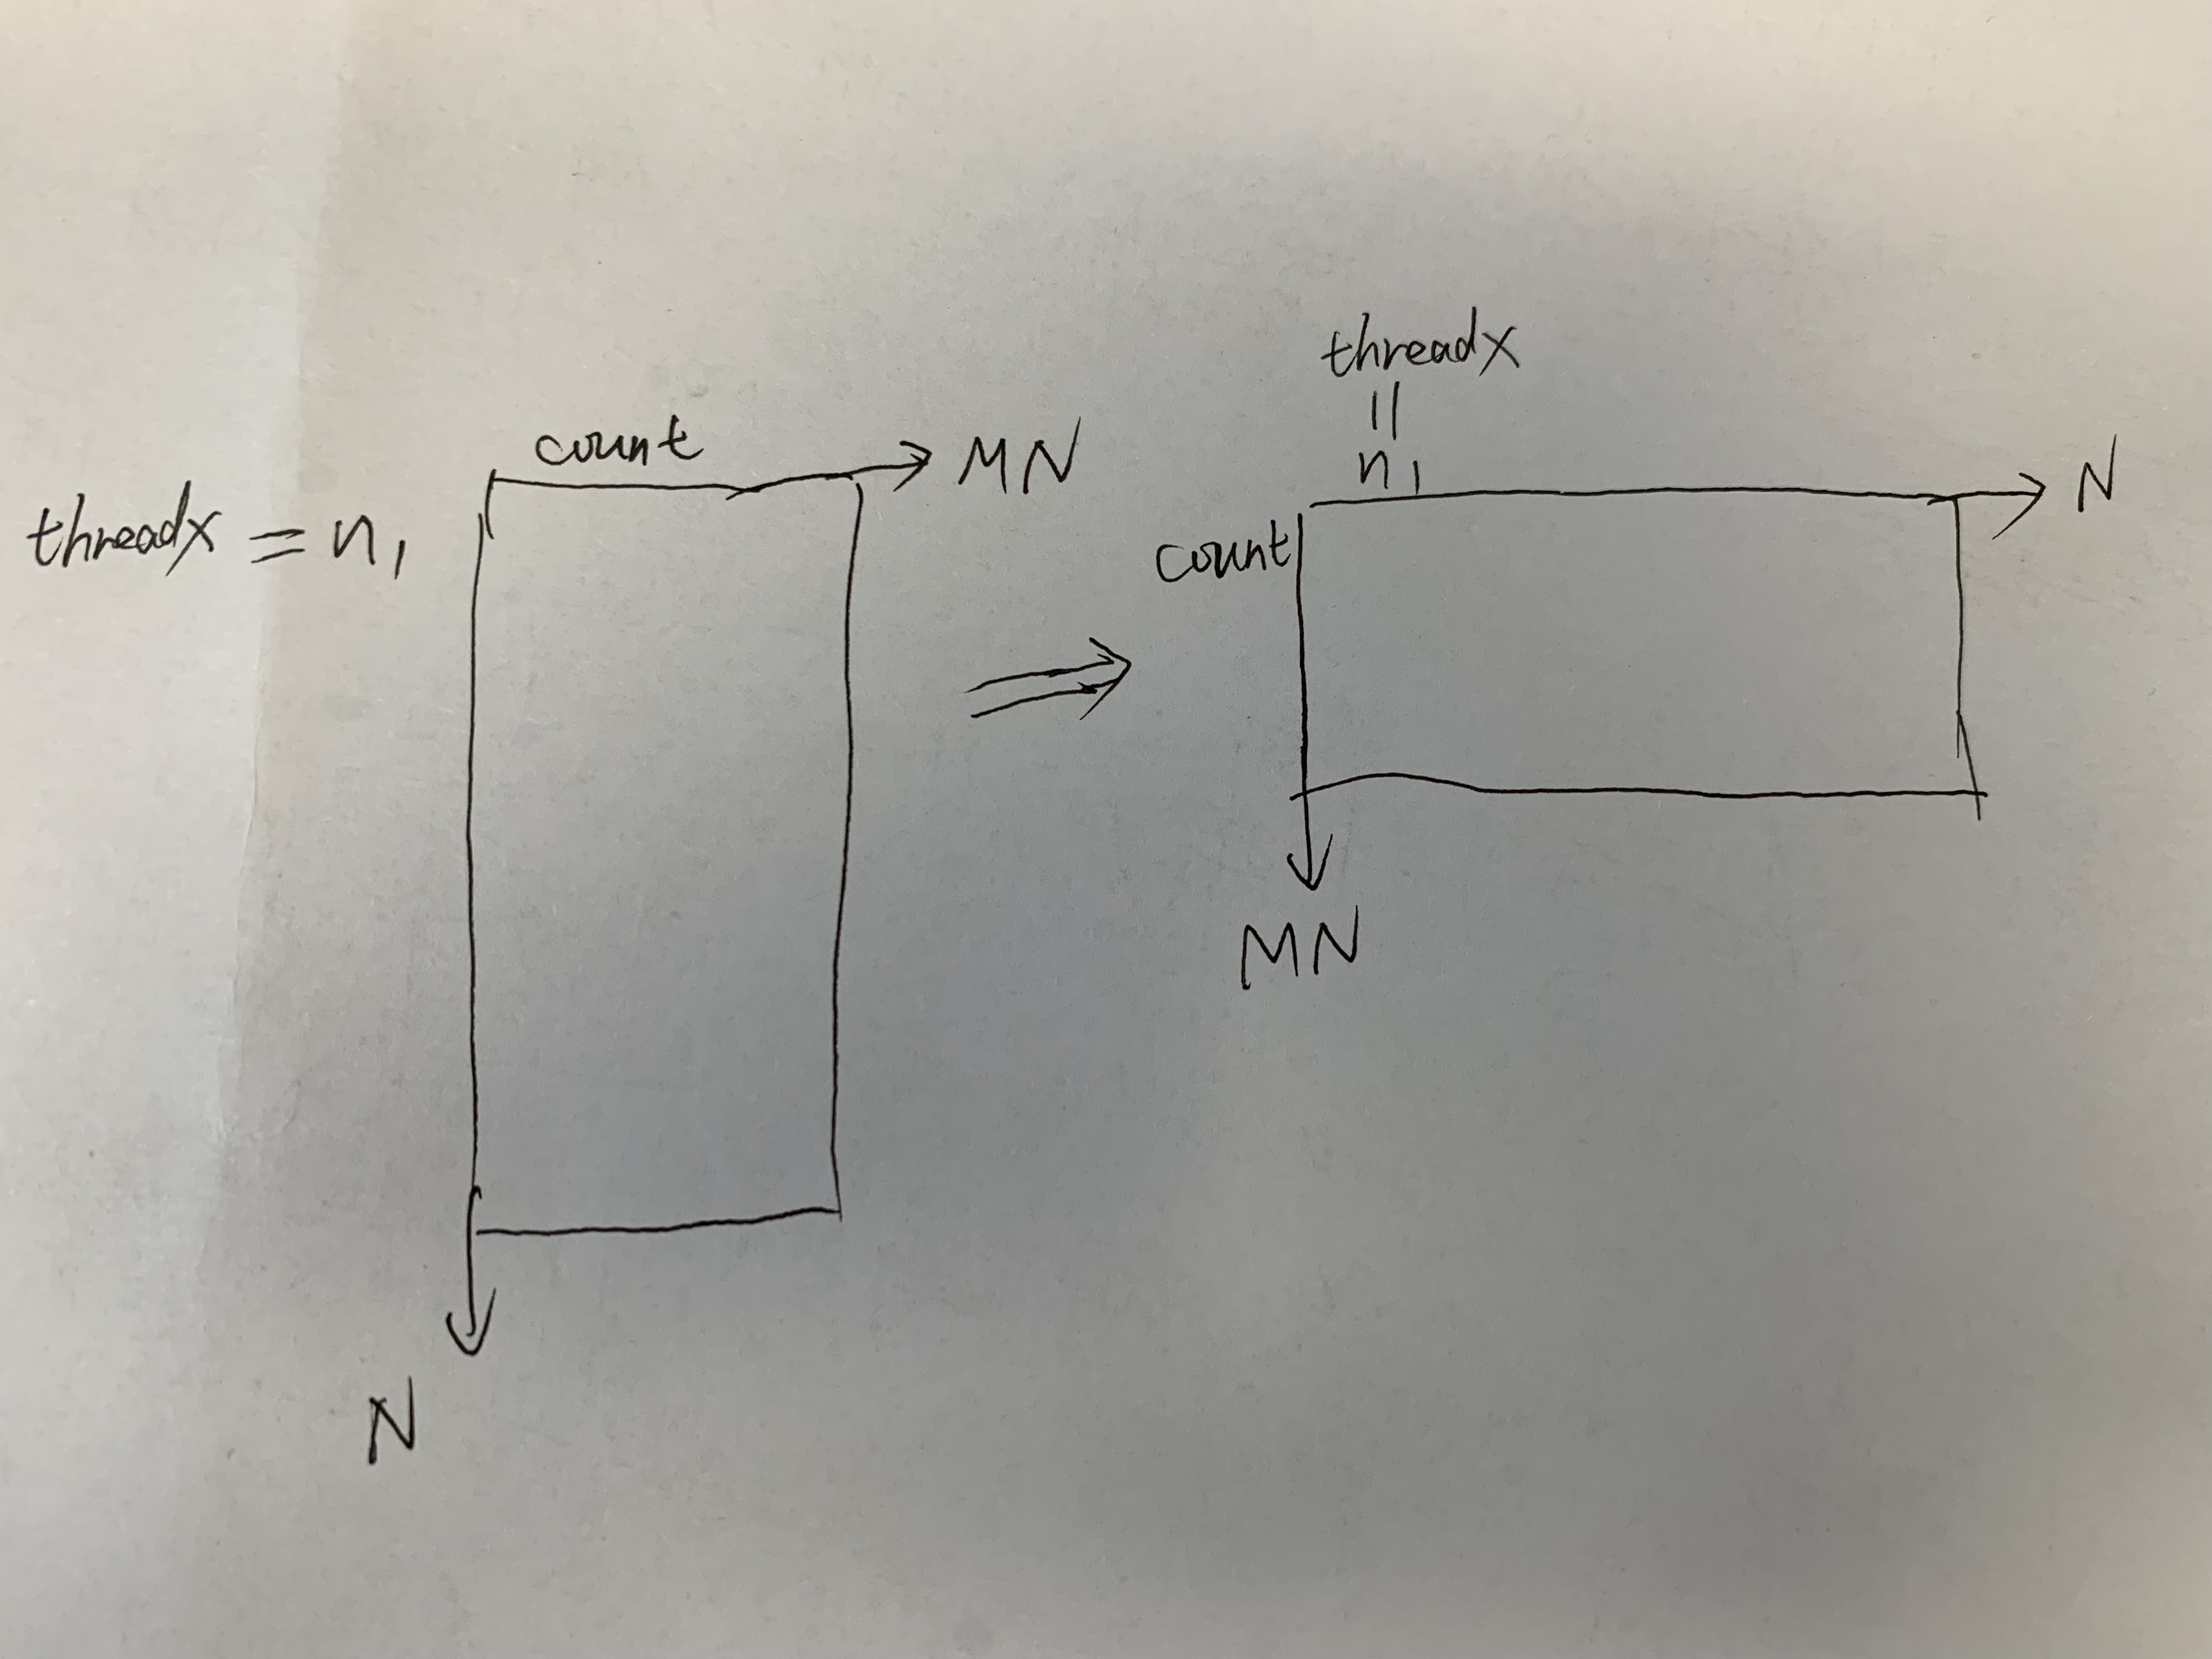 count
MN
threadx = n1
N
threadx
=
n1
N
count
MN